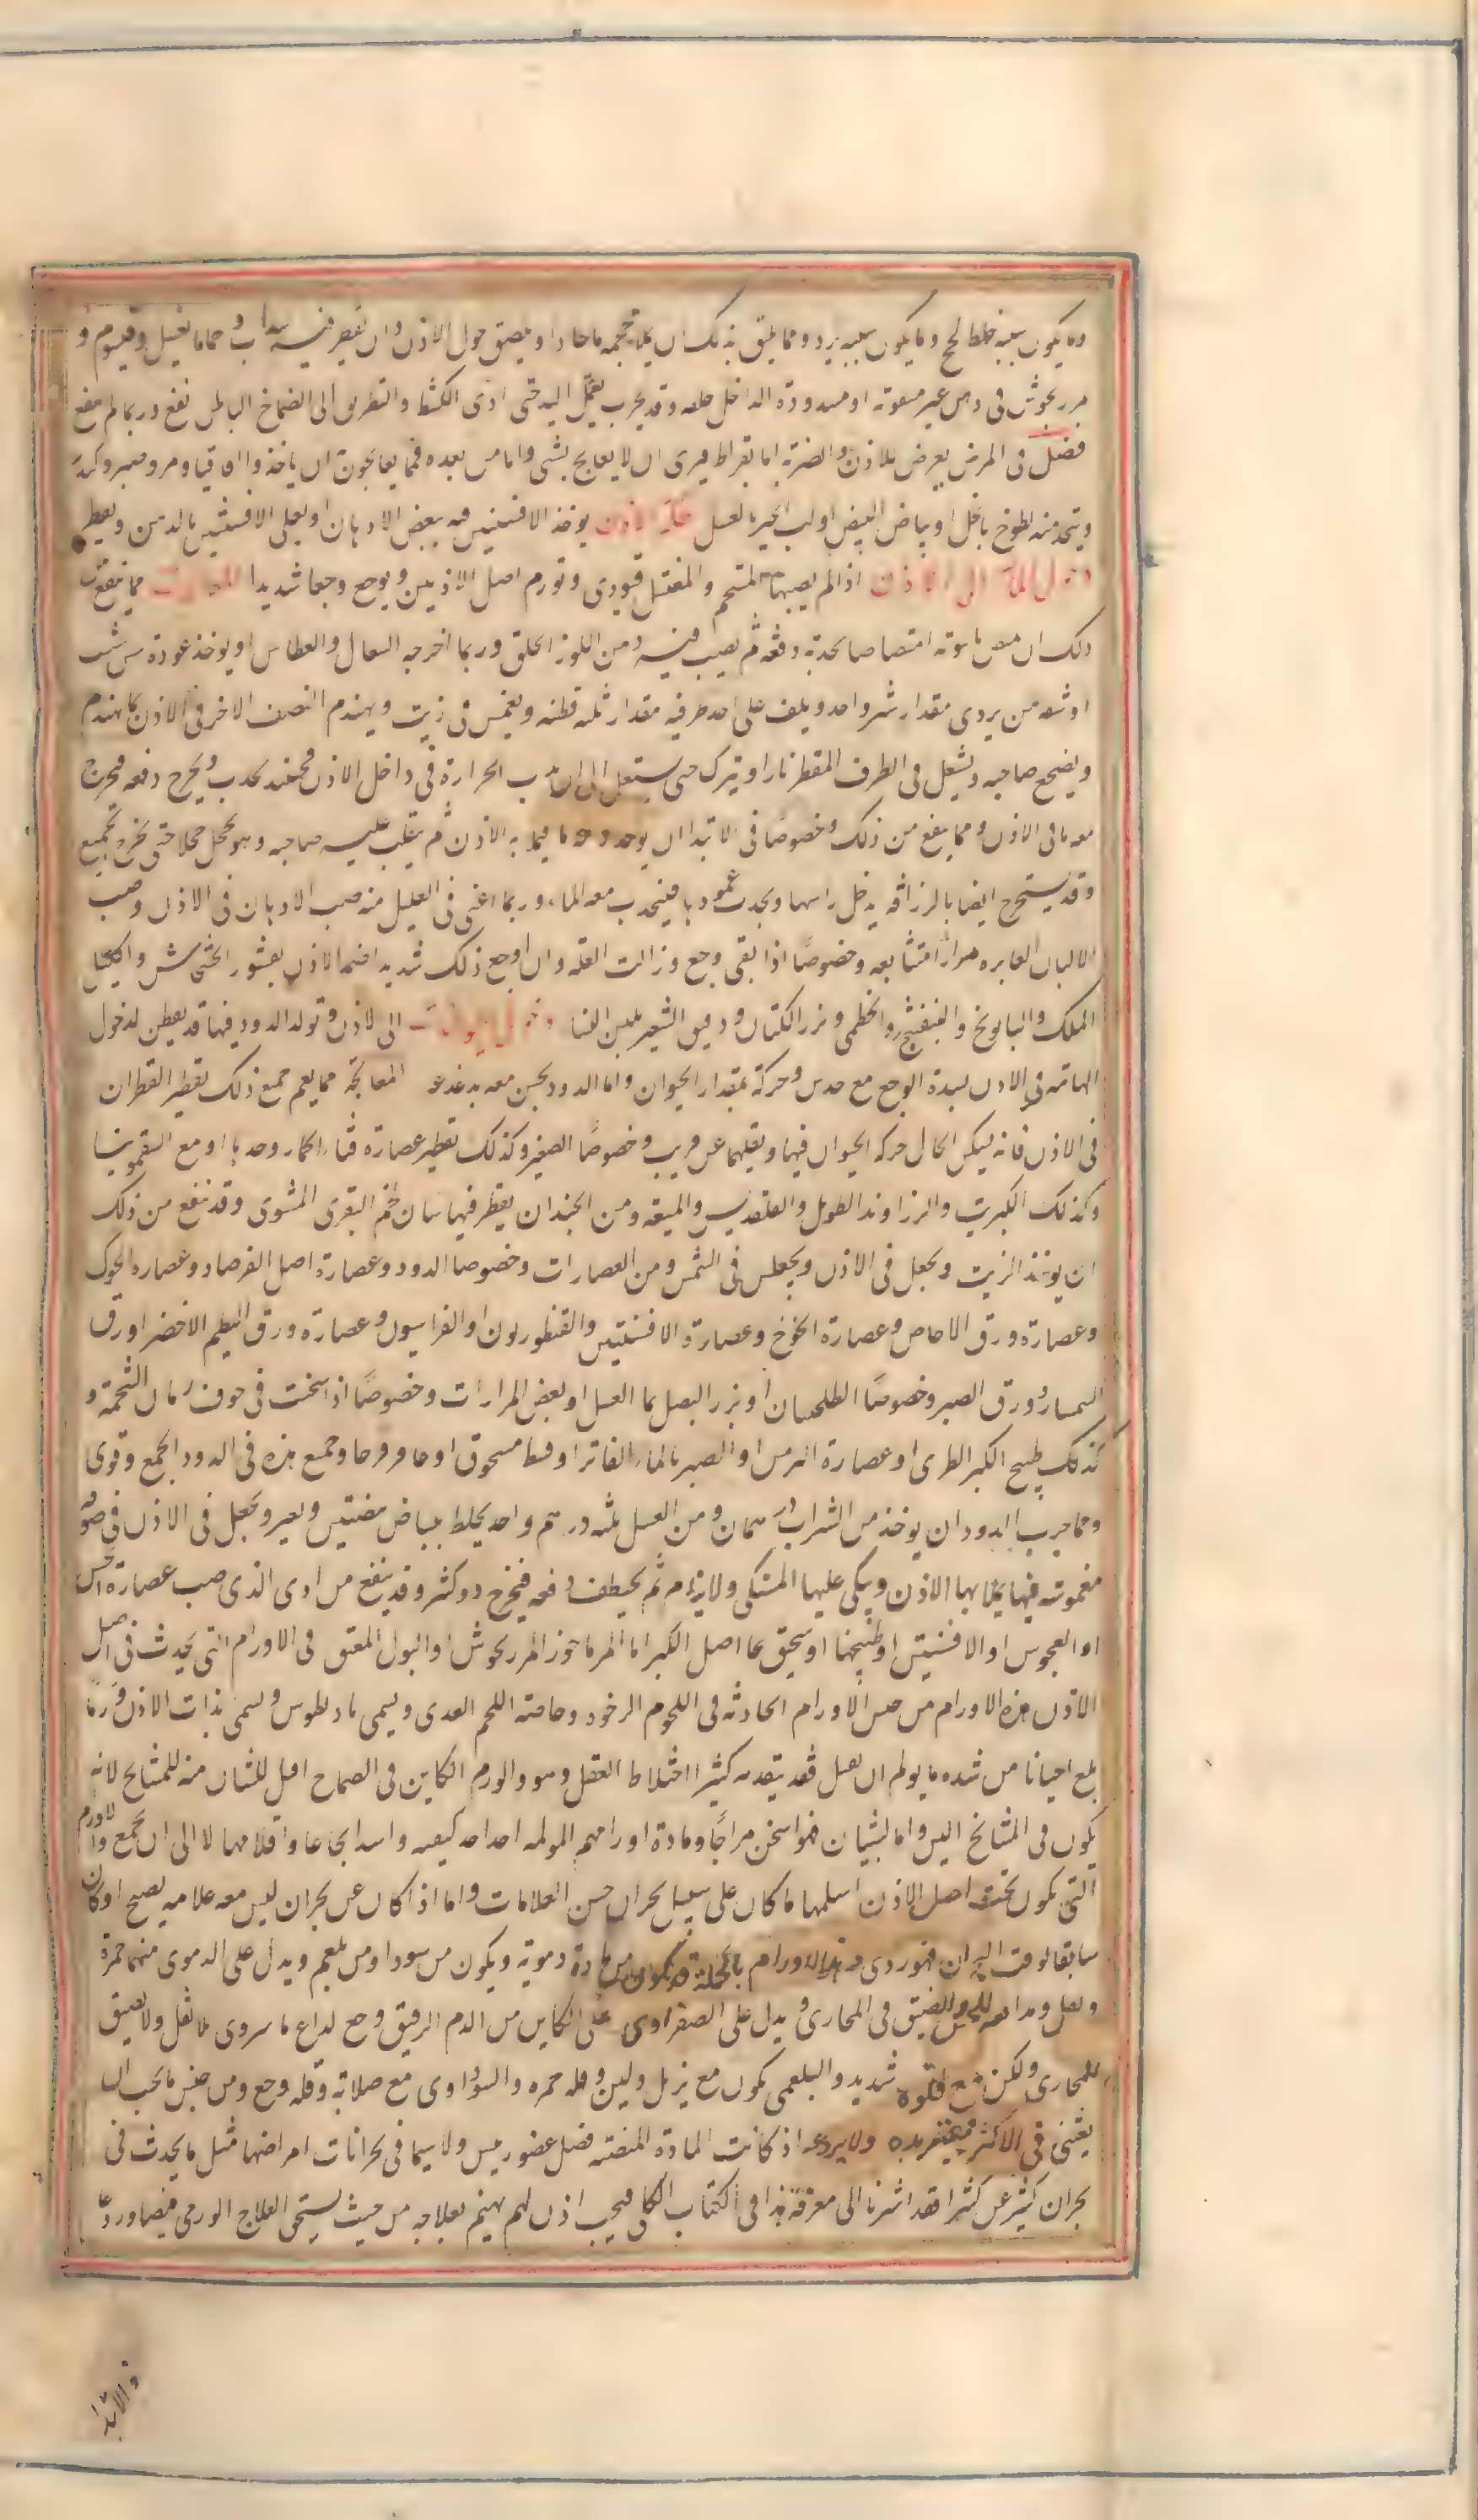 وما يكون سببه خلط لحج وما يكون سببه برد ومما يليق بذلك ان يملا محجمه ماء حارا ويلصق حول الاذن وان يقطر فيه سداب وحماما بعسل وقيسوم و
مرزنجوش فى دهن غير مسدودة الداخل وقد يجرب حتى ادى الكشط والتطريق الى الصماخ الباطن نفع وربما لم ينفع
فصل فى المرض يعرض للاذن والضربة اما بقراط فيرى ان لا يعالج بشى واما من بعده فمما يعالجون ان ياخذوا اقاقيا ومر وصبر وكندر
ويتخذ منه لطوخ بالخل او بياض البيض او لب الخبز بالعسل الاذن يوخذ الافسنتين بعض الادهان او يغلى الافسنتين بالدهن ويقطر
دخول الماء الى الاذن اذا لم يصبها المستحم والمغتسل فيودى وتورم اصل الاذنين ويوجع وجعا شديدا مما ينفع من
ذلك ان يمص بانبوبة امتصاصا يجذبه دفعة ثم يصب فيه دهن اللوز الحلو وربما اخرجه السعال والعطاس او يوخذ عودة من شبت
او شعبه من بردى مقدار شبر واحد ويلف على احد طرفيه مقدار ثلثه قطنه ويغمس فى زيت ويهندم النصف الاخر فى الاذن كما يهندم
ويضجع صاحبه ويشعل فى الطرف المقطن نارا ويترك حتى يشتعل الى ان الحرارة فى داخل الاذن فحينئذ يجذب ويخرج دفعه فيخرج
معه ما فى الاذن ومما ينفع من ذلك وخصوصًا فى الابتدا ان ما فيملا به الاذن ثم ينقلب عليه صاحبه وهو يحجل حجلا حتى يخرج الجميع
وقد يستخرج ايضا بالزراقه يدخل راسها ويجذب عمودها فينجذب معه الماء وربما اغنى فى القليل منه صب الادهان فى الاذن وصب
الالبان الفاتره مرارًا متتابعه وخصوصًا اذا بقى وجع وزالت العلة وان اوجع ذلك شديد اضمد الاذن بقشور الخشخاش واكليل
الملك والبابونج والبنفشج والخطمى وبزر الكتان ودقيق الشعير بلبن النسا دخول الحيوانات الى الاذن وتولد الدود فيها قد يفطن لدخول
الهامه فى الاذن لشدة الوجع مع خدش وحركة بمقدار الحيوان واما الدود فيحس معه بدغدغه المعالجة مما يعم جميع ذلك تقطير القطران
فى الاذن فانه يسكن فى الحال حركة الحيوان فيها ويقتلهما عن قريب وخصوصًا الصغير وكذلك تقطير عصارة قثاء الحمار وحدها او مع السقمونيا
وكذلك الكبريت والزراوند الطويل والقلقديس والميعه ومن الجيد ان يقطر فيها سيلان لحم البقرى المشوى وقد ينفع من ذلك
ان يوخذ الزيت ويجعل فى الاذن ويجلس فى الشمس ومن العصارات وخصوصا الدود وعصارة اصل الفرصاد وعصاره الحوك
وعصارة ورق الاجاص وعصارة الخوخ وعصارة الافسنتين والقنطوريون او الفراسيون وعصارة ورق البطم الاخضر او ورق
ورق الصبر وخصوصًا او بزر البصل بماء العسل او بعض المرارات وخصوصًا اذا سخنت فى جوف رمان الشحمة و
كذلك طبيخ الكبر الطرى او عصارة الترمس او الصبر بالماء الفاتر او قسط مسحوق او عاقرقرحا وجمع هذه فى الدود اجمع وقوى
ومما جرب للدود ان يوخذ من الشراب درهمان ومن العسل ثلثه درهم واحد يخلط ببياض بيضتين ويفتر ويجعل فى الاذن فى صوف
مغموسه فيها يملا بها الاذن ويتكى عليها المشتكى ولا ينام ثم يختطف دفعه فيخرج دود كثير وقد ينفع من اذى الذى صب عصارة الخس
او العوسج او الافسنتين او طبيخها او سحيق بماء اصل الكبر اما المرماحوز المرزنجوش او البول المعتق فى الاورام التى يحدث فى اصل
الاذن هذه الاورام من جنس الاورام الحادثة فى اللحوم الرخوه وخاصة اللحم الغددى ويسمى باديطوس ويسمى بذات الاذن وربما
بلغ احيانا من شدة ما يولم ان يقتل وقد يتقدمه كثيرا اختلاط العقل وهو والورم الكاين فى الصماخ اقتل للشبان منه للمشايخ لانه
يكون فى المشايخ الين واما لشبان فهو اسخن مزاجًا ومادة اورامهم المولمه احد كيفيه واشد ايجاعا واقتلها الى ان يجمع والاورام
التى يكون تحت اصل الاذن اسلمها ما كان على سبيل بحران حسن العلامات واما اذا كان عن بحران ليس معه علامه نضج او كان
سابقا لوقت البحران فهو ردى وهذه الاورام بالجملة قد يكون من مادة دموية ويكون من سودا ومن بلغم ويدل على الدموى منها حمرة
وثقل ومدافعه للحس والضيق فى المجارى ويدل على الصفراوى على الكاين من الدم الرقيق وجع لذاع ما سروى بلا ثقل ولا تضيق
للمجارى ولكن مع قلوة شديد والبلغمى يكون مع ترهل ولين وقله حمره والسوداوى مع صلابة وقله وجع ومن جنس ما يجب ان
يعتنى فى الاكثر ولا يردعه اذا كانت المادة المنصبه فضل عضو رييس ولا سيما فى بحرانات امراضها مثل ما يحدث فى
بحران ليثرغس كثيرا فقد اشرنا الى معرفة هذا فى الكتاب الكلى فيجب اذن ان لم يهتم بعلاجه من حيث يستحق العلاج الورمى فيضاد وردعًا
والابتدا